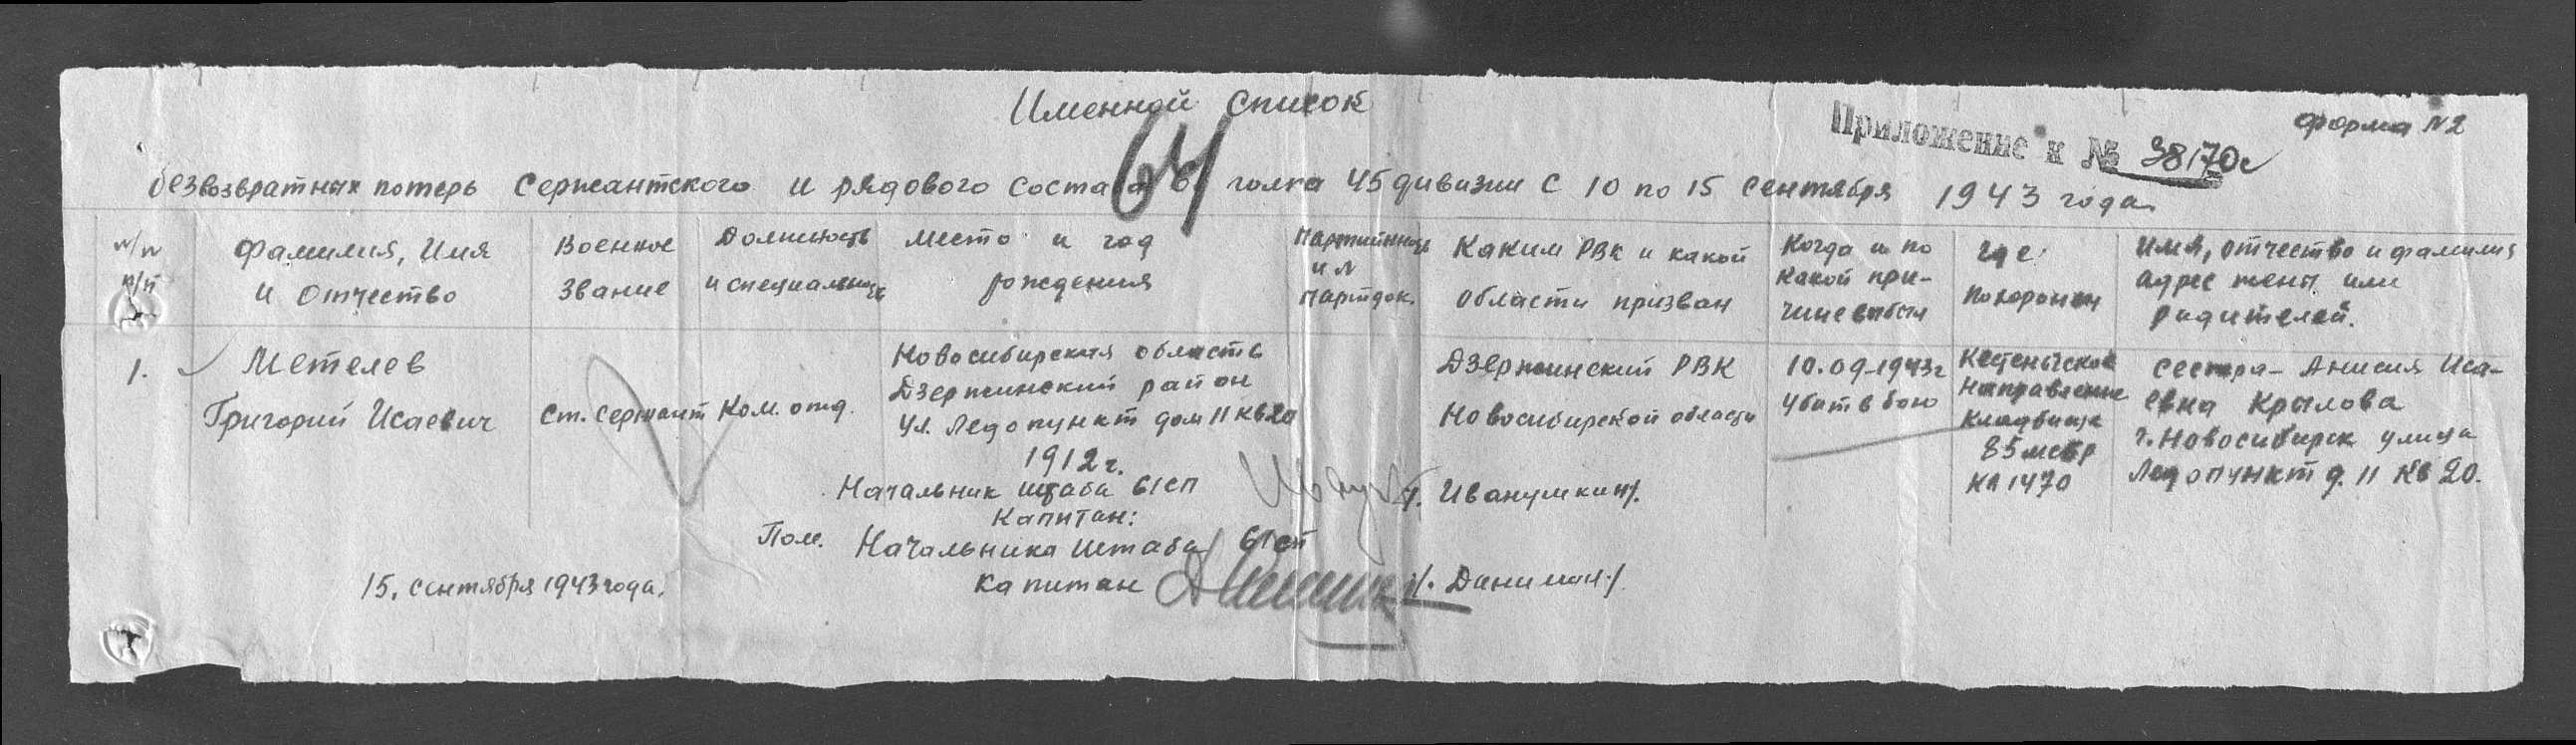 Именной список
Форма N2
Приложение к № 38170с
64
безвозвратных потерь сержантского и рядового состава 61 полка 45 дивизии с 10 по 15 сентября 1943 года
N/N п/п
Фамилия, Имя
и Отчество
Военное
звание
Должность
и специальность
Место и год
рождения
Партийность
и N
партдок.
Каким РВК и какой
области призван
Когда и по
какой при-
чине выбыл
Где
похоронен
Имя, отчество и фамилия
адрес жены или
родителей.
1.
Метелев
Григорий Исаевич
Ст. сержант
Ком. отд.
Новосибирская область
Дзержинский район
ул. Ледопункт дом 11 кв 20
1912 г.
Дзержинский РВК
Новосибирской области
10.09-1943г
убит в бою
направление
кладбище
85 метр
КЛ 1470
сестра - Анисия Иса-
евна Крылова
г. Новосибирск улица
Ледопункт д. 11 кв 20.
Начальник штаба 61сп
Капитан: /. Иванушкин/.
Пом. Начальника штаба 61сп
капитан /. Данилин./
15. сентября 1943 года.